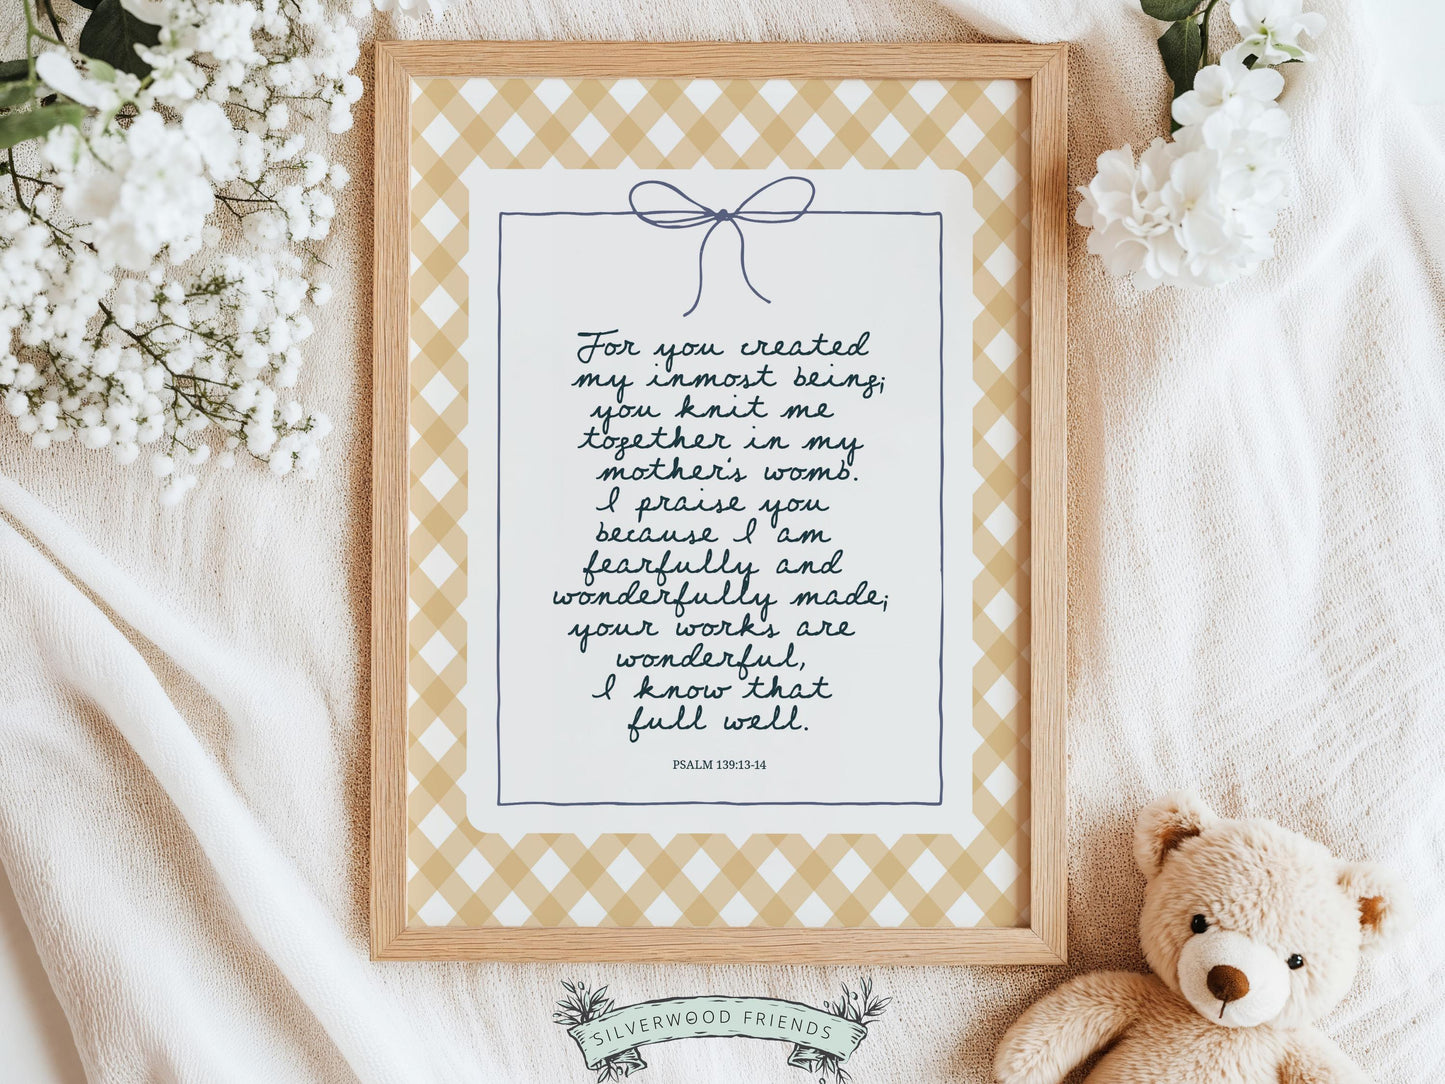 For you created
my inmost being;
you knit me
together in my
mother's womb.
I praise you
because I am
fearfully and
wonderfully made;
your works are
wonderful,
I know that
full well.
PSALM 139:13-14
SILVERWOOD FRIENDS